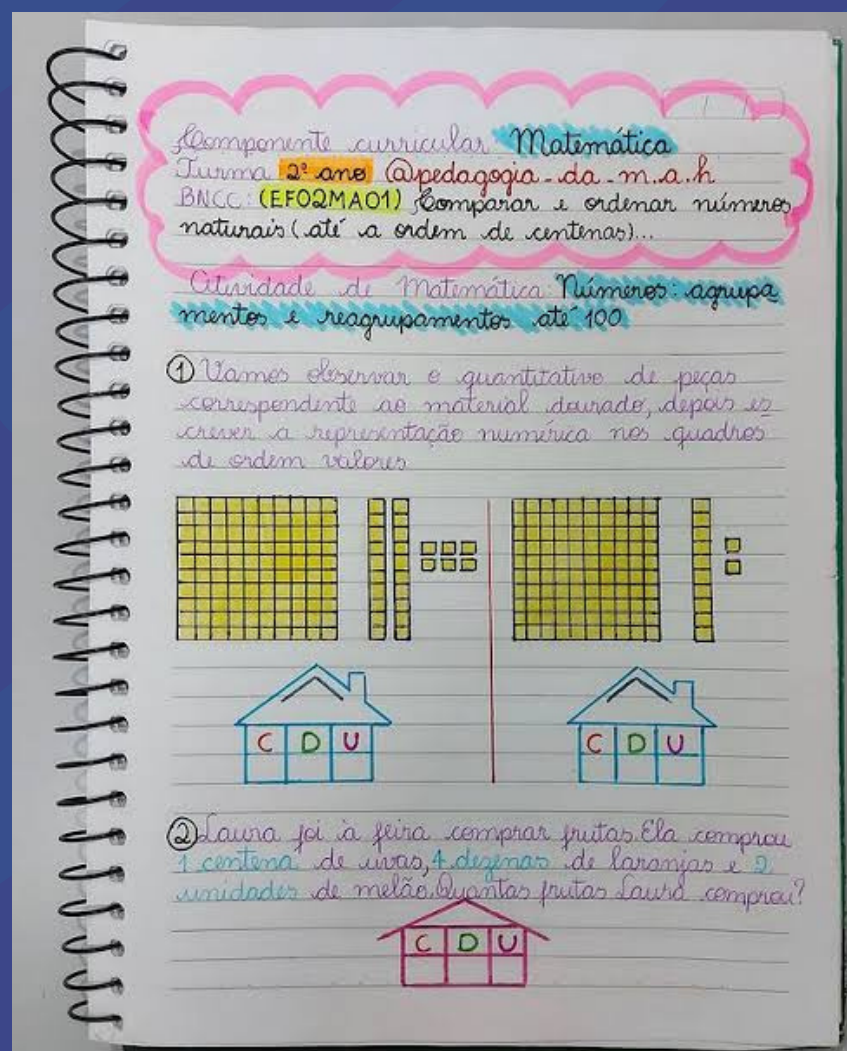 / /
Componente curricular Matemática
Turma 2º ano @pedagogia-da-m.a.h
BNCC: (EF02MA01) Comparar e ordenar números
naturais (até a ordem de centenas)...
Atividade de Matemática: Números: agrupa
mentos e reagrupamentos até 100
① Vamos observar o quantitativo de peças
correspondente ao material dourado, depois es
crever a representação numérica nos quadros
de ordem valores
C D U C D U
② Laura foi à feira comprar frutas. Ela comprou
1 centena de uvas, 4 dezenas de laranjas e 2
unidades de melão. Quantas frutas Laura comprou?
C D U